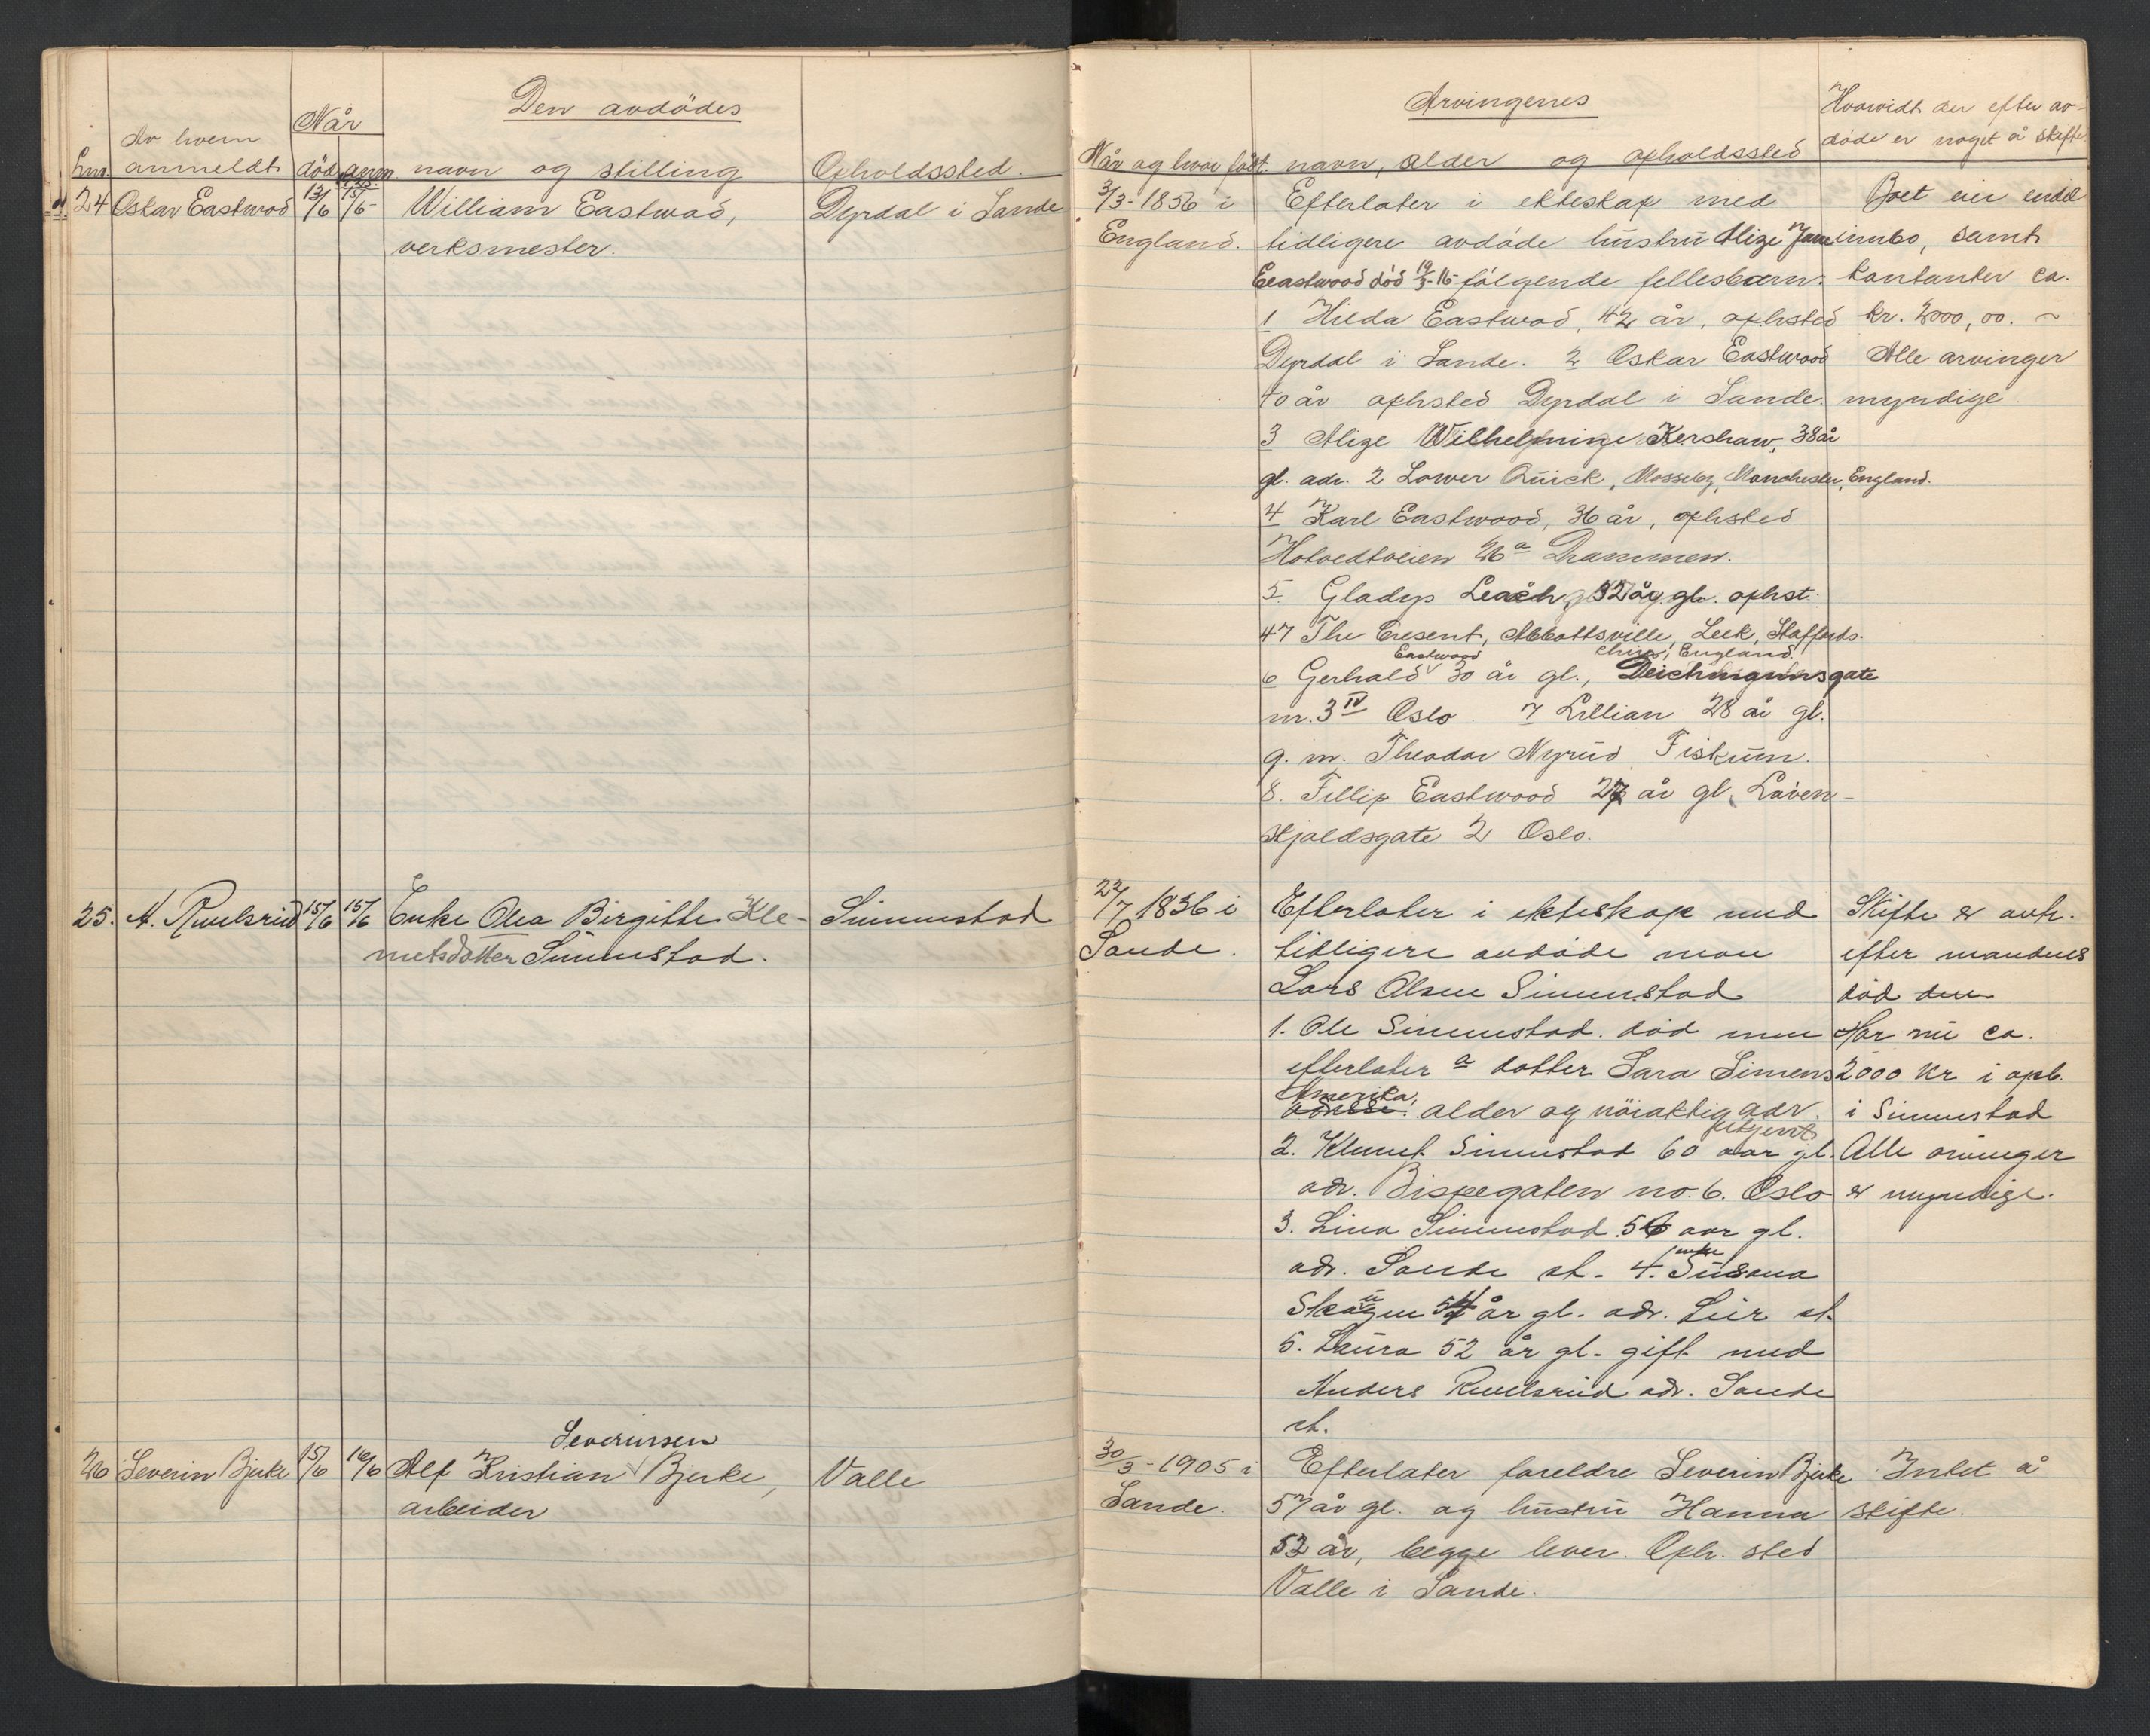 Den avdödes
Når
Av hvem
Lnr. anmeldt död anm. navn og stilling Opholdssted.
24 Oskar Eastwood 13/6 15/6 William Eastwood, Dyrdal i Sande
verksmester.
25. A. Ruelsrud 15/6 15/6 Enke Olea Birgitte Kle- Simenstad
metsdatter Simenstad.
Severinsen
26 Severin Bjerke 15/6 16/6 Alf Kristian Bjerke, Valle
arbeider
Arvingenes Hvorvidt der efter av-
Når og hvor födt. navn, alder og opholdssted döde er noget å skifte
3/3-1856 i Efterlater i ekteskap med Boet eier endel
England. tidligere avdöde hustru Alize Jane innbo, samt
Eeastwood död 19/3-16 fölgende fellesbarn: kontanter ca.
1 Hilda Eastwood, 42 år, ophsted kr. 2000,00.
Dyrdal i Sande. 2 Oskar Eastwood Alle arvinger
40 år ophsted Dyrdal i Sande. myndige.
3 Alize Wilhelmine Kershaw, 38 år
gl. adr. 2 Lower Quick, Mosseley, Manchester, England.
4 Karl Eastwood, 36 år, ophsted
Hotvedtveien 26a Drammen.
5. Gladys Leach, 32 år gl. ophst.
47 The Cresent, Abbottsville, Leek, Staffords-
Eastwood England.
6 Gerhald 30 år gl., Deichmannsgate
nr. 3 IV Oslo. 7 Lillian 28 år gl.
g. m. Theodor Nyrud Fiskum.
8. Fillip Eastwood 27 år gl. Löven-
skjoldsgate 2 Oslo.
22/7 1836 i Efterlater i ekteskap med Skifte er avh.
Sande. tidligere avdöde man efter mandnes
Lars Olsen Simenstad död den
1. Ole Simenstad. död men Har nu ca.
efterlater a datter Sara Simens 2000 kr i opb.
Amerika,
adresse. alder og nöiaktig adr. i Simenstad
ukjent
2. Klemet Simenstad 60 aar gl. Alle arvinger
adr. Bispegaten no. 6. Oslo er myndige.
3. Lina Simenstad 56 aar gl.
enke
adr. Sande st. 4. Susana
Skaugen 54 år gl. adr. Lier st.
5. Laura 52 år gl. gift med
Anders Ruelsrud adr. Sande
st.
30/3-1905 i Efterlater foreldre Severin Bjerke Intet å
Sande. 57 år gl. og hustru Hanna skifte.
52 år, begge lever. Oph. sted
Valle i Sande.